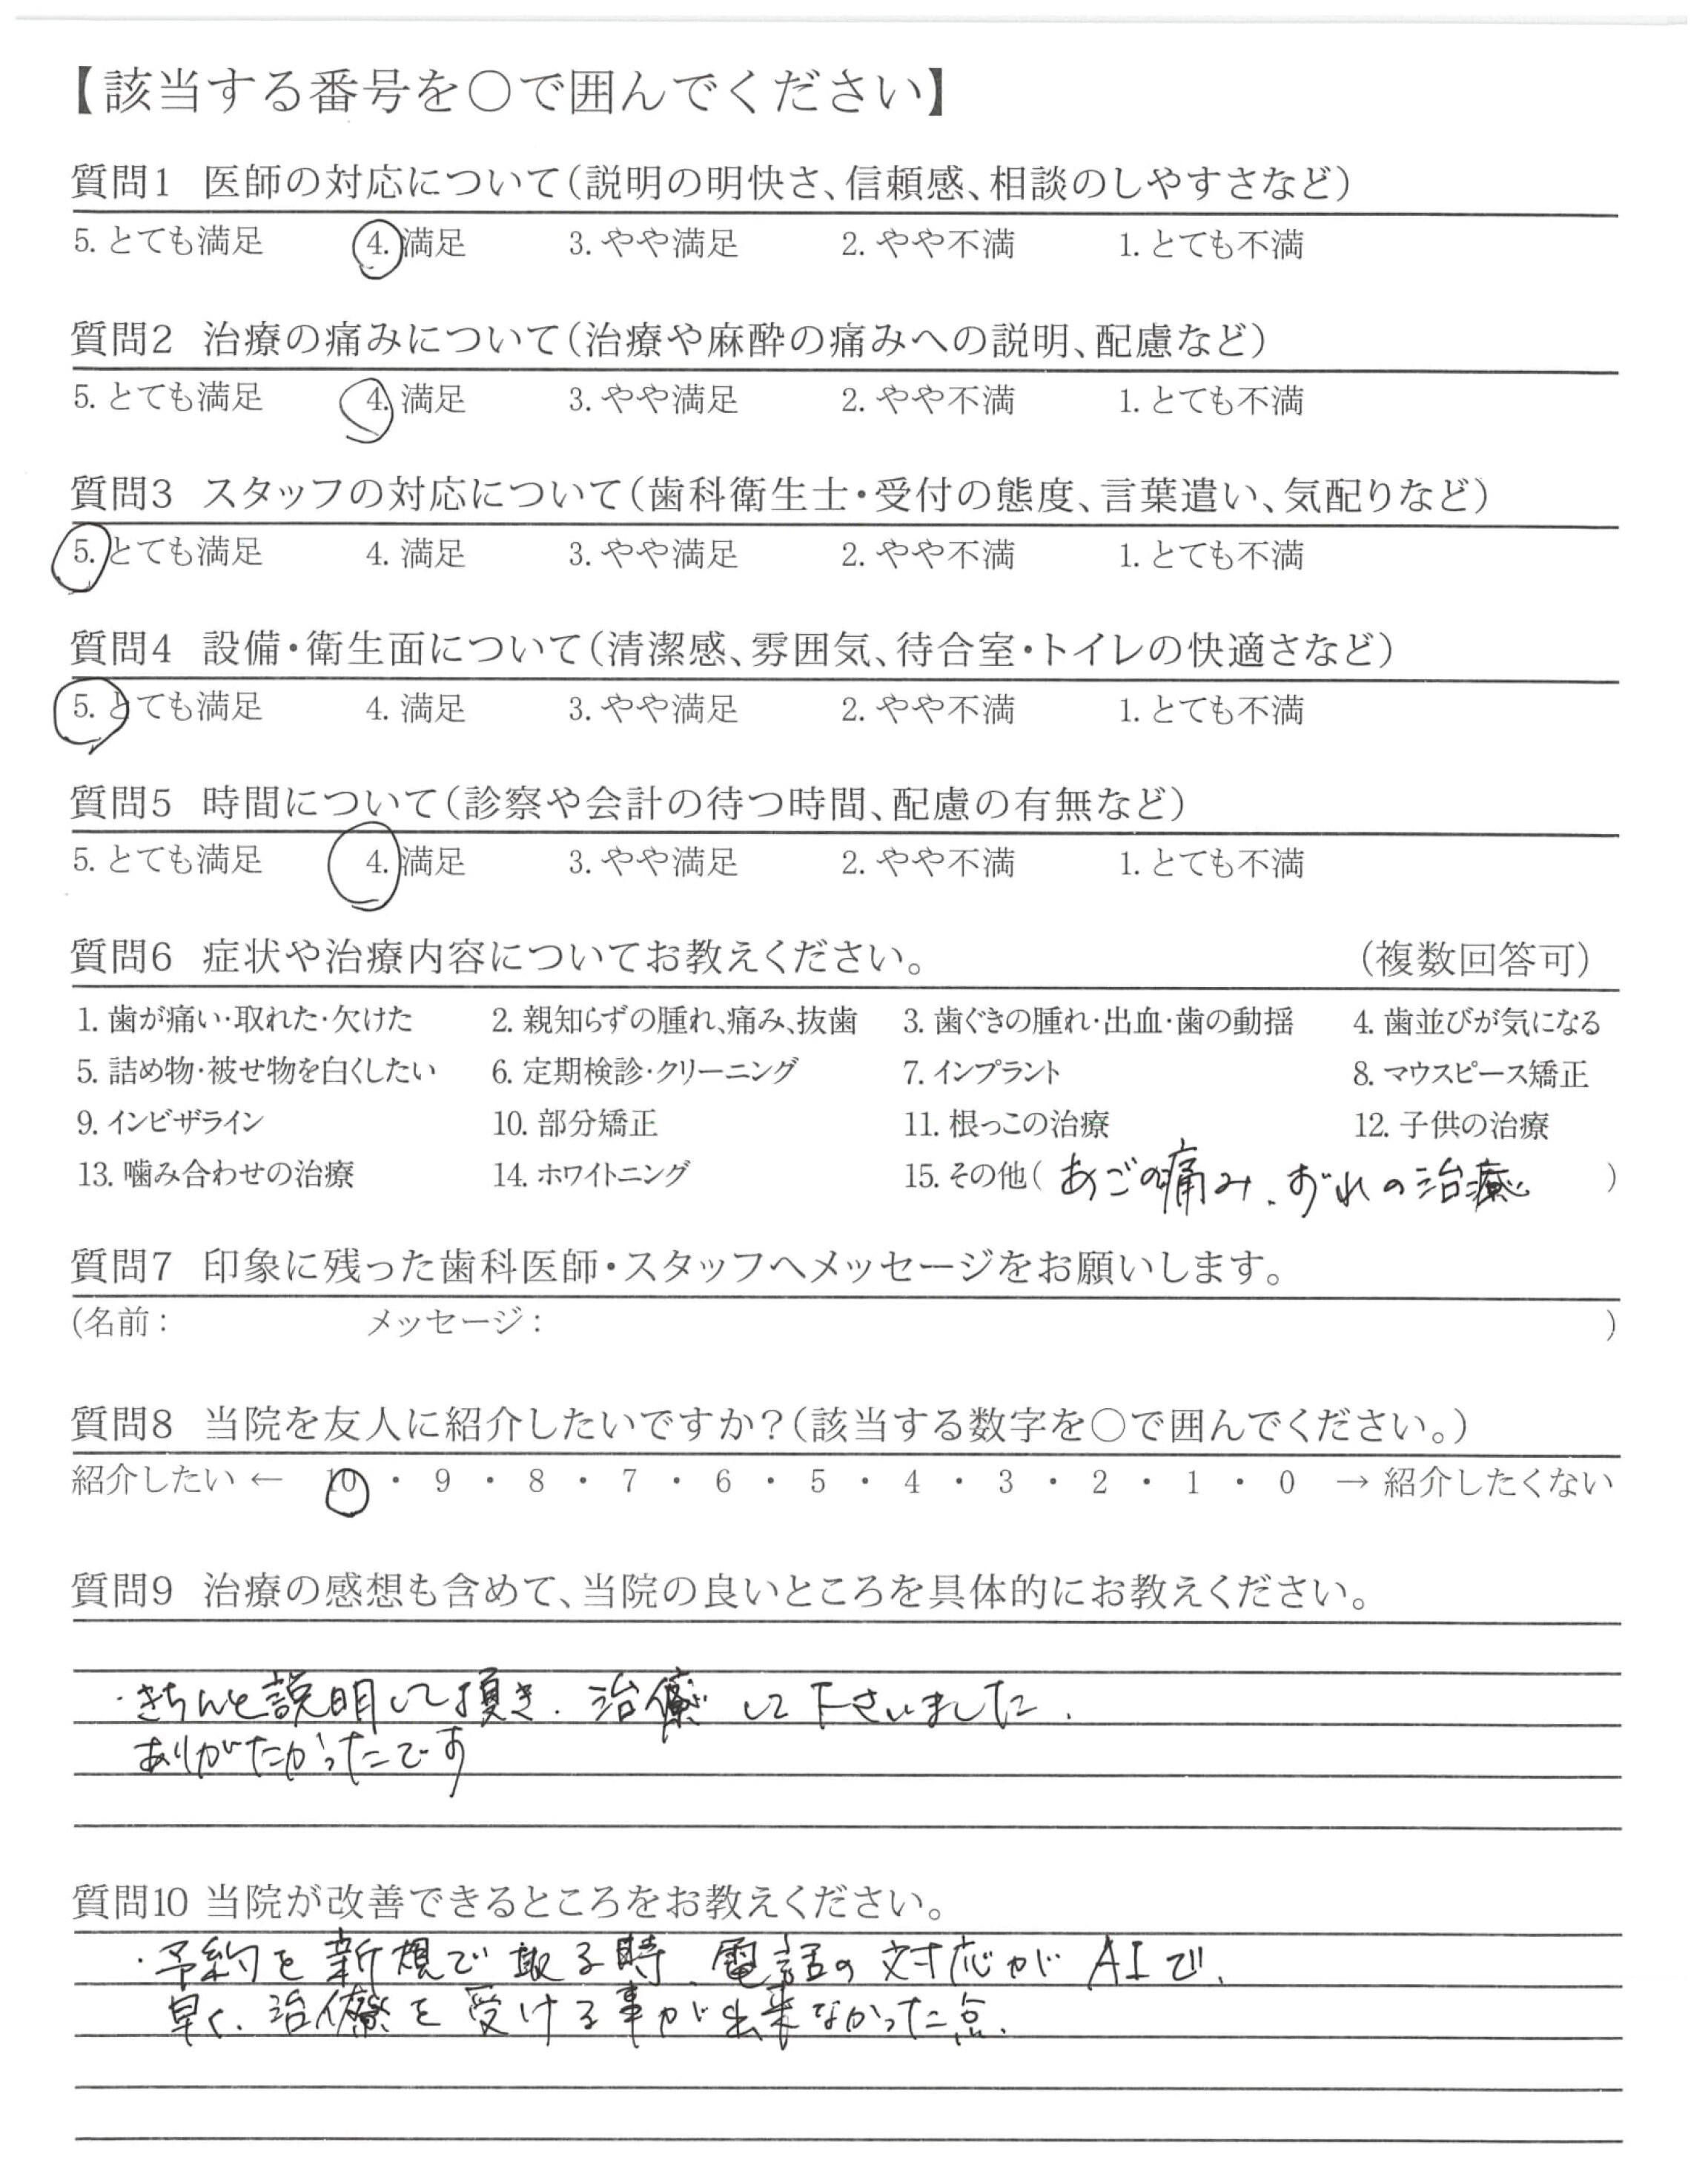 【該当する番号を○で囲んでください】
質問1 医師の対応について（説明の明快さ、信頼感、相談のしやすさなど）
5. とても満足 4. 満足 3. やや満足 2. やや不満 1. とても不満
質問2 治療の痛みについて（治療や麻酔の痛みへの説明、配慮など）
5. とても満足 4. 満足 3. やや満足 2. やや不満 1. とても不満
質問3 スタッフの対応について（歯科衛生士・受付の態度、言葉遣い、気配りなど）
5. とても満足 4. 満足 3. やや満足 2. やや不満 1. とても不満
質問4 設備・衛生面について（清潔感、雰囲気、待合室・トイレの快適さなど）
5. とても満足 4. 満足 3. やや満足 2. やや不満 1. とても不満
質問5 時間について（診察や会計の待つ時間、配慮の有無など）
5. とても満足 4. 満足 3. やや満足 2. やや不満 1. とても不満
質問6 症状や治療内容についてお教えください。 （複数回答可）
1. 歯が痛い・取れた・欠けた 2. 親知らずの腫れ、痛み、抜歯 3. 歯ぐきの腫れ・出血・歯の動揺 4. 歯並びが気になる
5. 詰め物・被せ物を白くしたい 6. 定期検診・クリーニング 7. インプラント 8. マウスピース矯正
9. インビザライン 10. 部分矯正 11. 根っこの治療 12. 子供の治療
13. 噛み合わせの治療 14. ホワイトニング 15. その他（ あごの痛み、ずれの治療 ）
質問7 印象に残った歯科医師・スタッフへメッセージをお願いします。
(名前： メッセージ： )
質問8 当院を友人に紹介したいですか？（該当する数字を○で囲んでください。）
紹介したい ← 10 ・ 9 ・ 8 ・ 7 ・ 6 ・ 5 ・ 4 ・ 3 ・ 2 ・ 1 ・ 0 → 紹介したくない
質問9 治療の感想も含めて、当院の良いところを具体的にお教えください。
・きちんと説明して頂き、治療して下さいました。
ありがたかったです
質問10 当院が改善できるところをお教えください。
・予約を新規で取る時、電話の対応がAIで、
早く、治療を受ける事が出来なかった点。